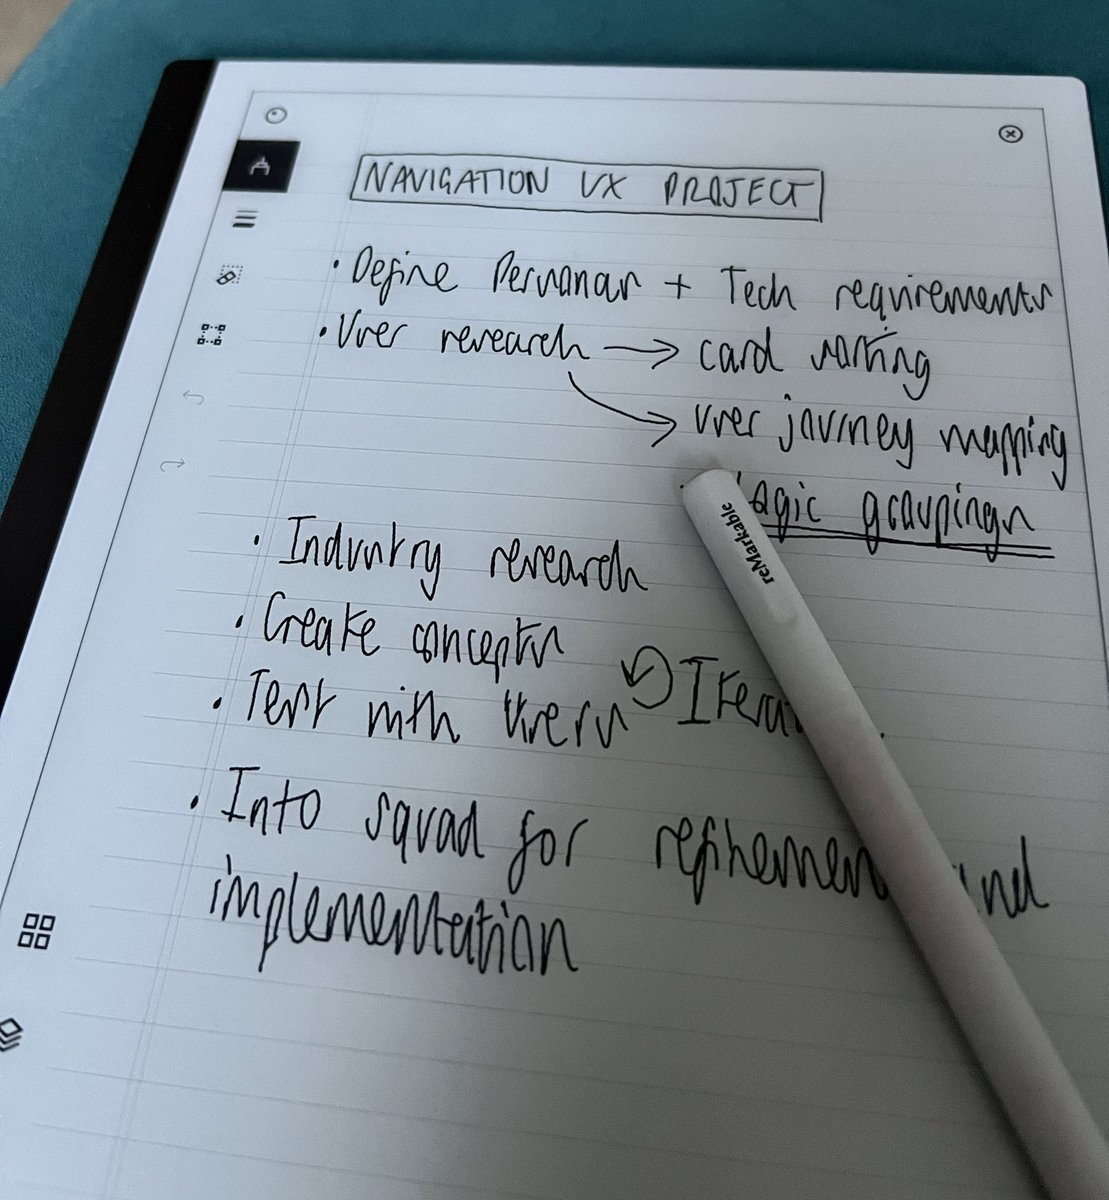 NAVIGATION UX PROJECT
• Define Personas + Tech requirements
• User research → card sorting
→ user journey mapping
groupings
• Industry research
• Create concepts
• Test with Users
• Into squad for refinement and
implementation
reMarkable